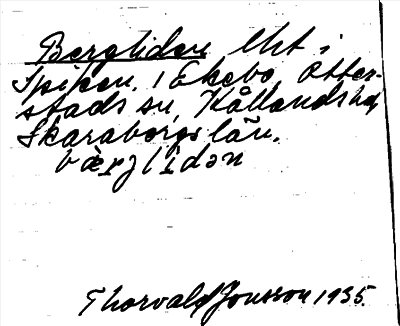 Bergliden lht i
Spiken, 1 Ekebo, Otter-
stads sn, Kållands hd,
Skaraborgs län.
bærjlidən
Thorvald Jonsson 1935.